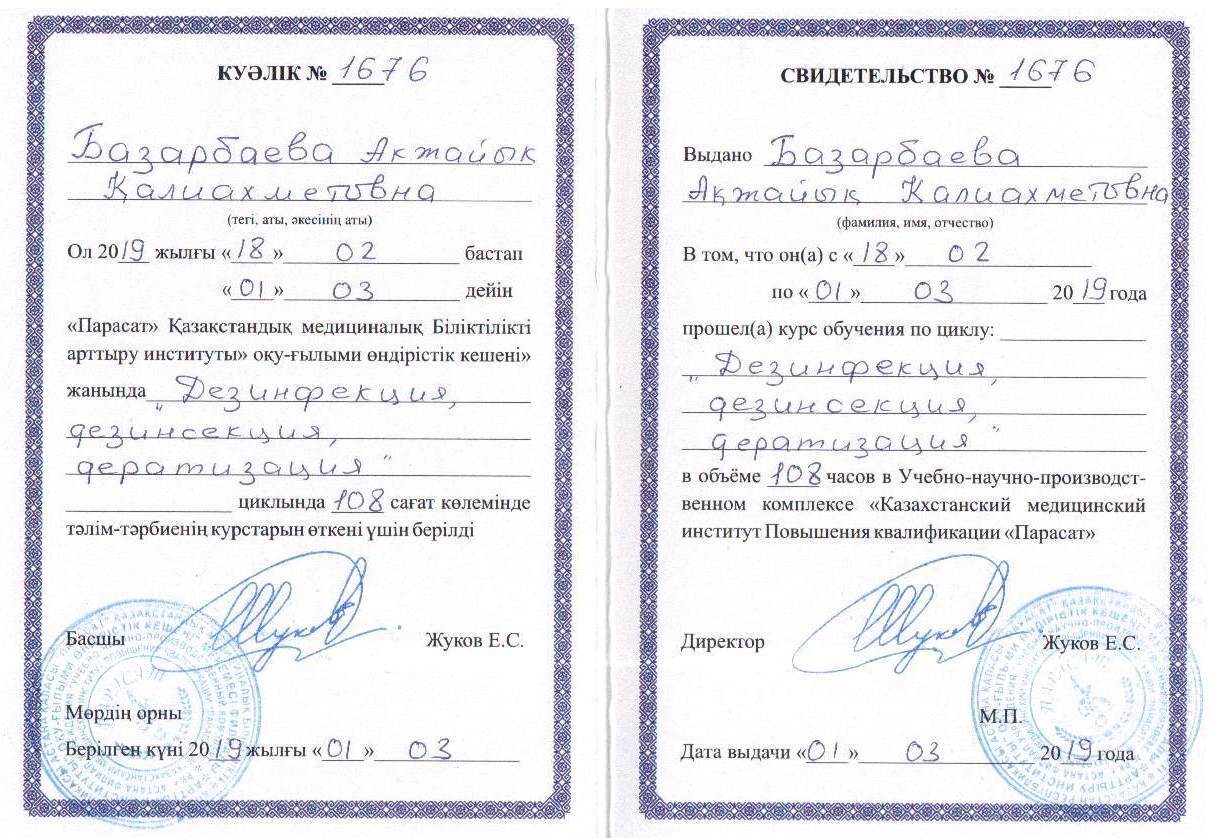 КУӘЛІК № 1676
Базарбаева Ақжайық
Қалиахметовна
(тегі, аты, әкесінің аты)
Ол 2019 жылғы «18» 02 бастап
«01» 03 дейін
«Парасат» Қазақстандық медициналық Біліктілікті
арттыру институты» оқу-ғылыми өндірістік кешені»
жанында „Дезинфекция,
дезинсекция,
дератизация"
циклында 108 сағат көлемінде
тәлім-тәрбиенің курстарын өткені үшін берілді
Басшы Жуков Е.С.
Мөрдің орны
Берілген күні 2019 жылғы «01» 03
СВИДЕТЕЛЬСТВО № 1676
Выдано Базарбаева
Ақжайық Калиахметовна
(фамилия, имя, отчество)
В том, что он(а) с «18» 02
по «01» 03 2019 года
прошел(а) курс обучения по циклу:
„Дезинфекция,
дезинсекция,
дератизация"
в объёме 108 часов в Учебно-научно-производст-
венном комплексе «Казахстанский медицинский
институт Повышения квалификации «Парасат»
Директор Жуков Е.С.
М.П.
Дата выдачи «01» 03 2019 года